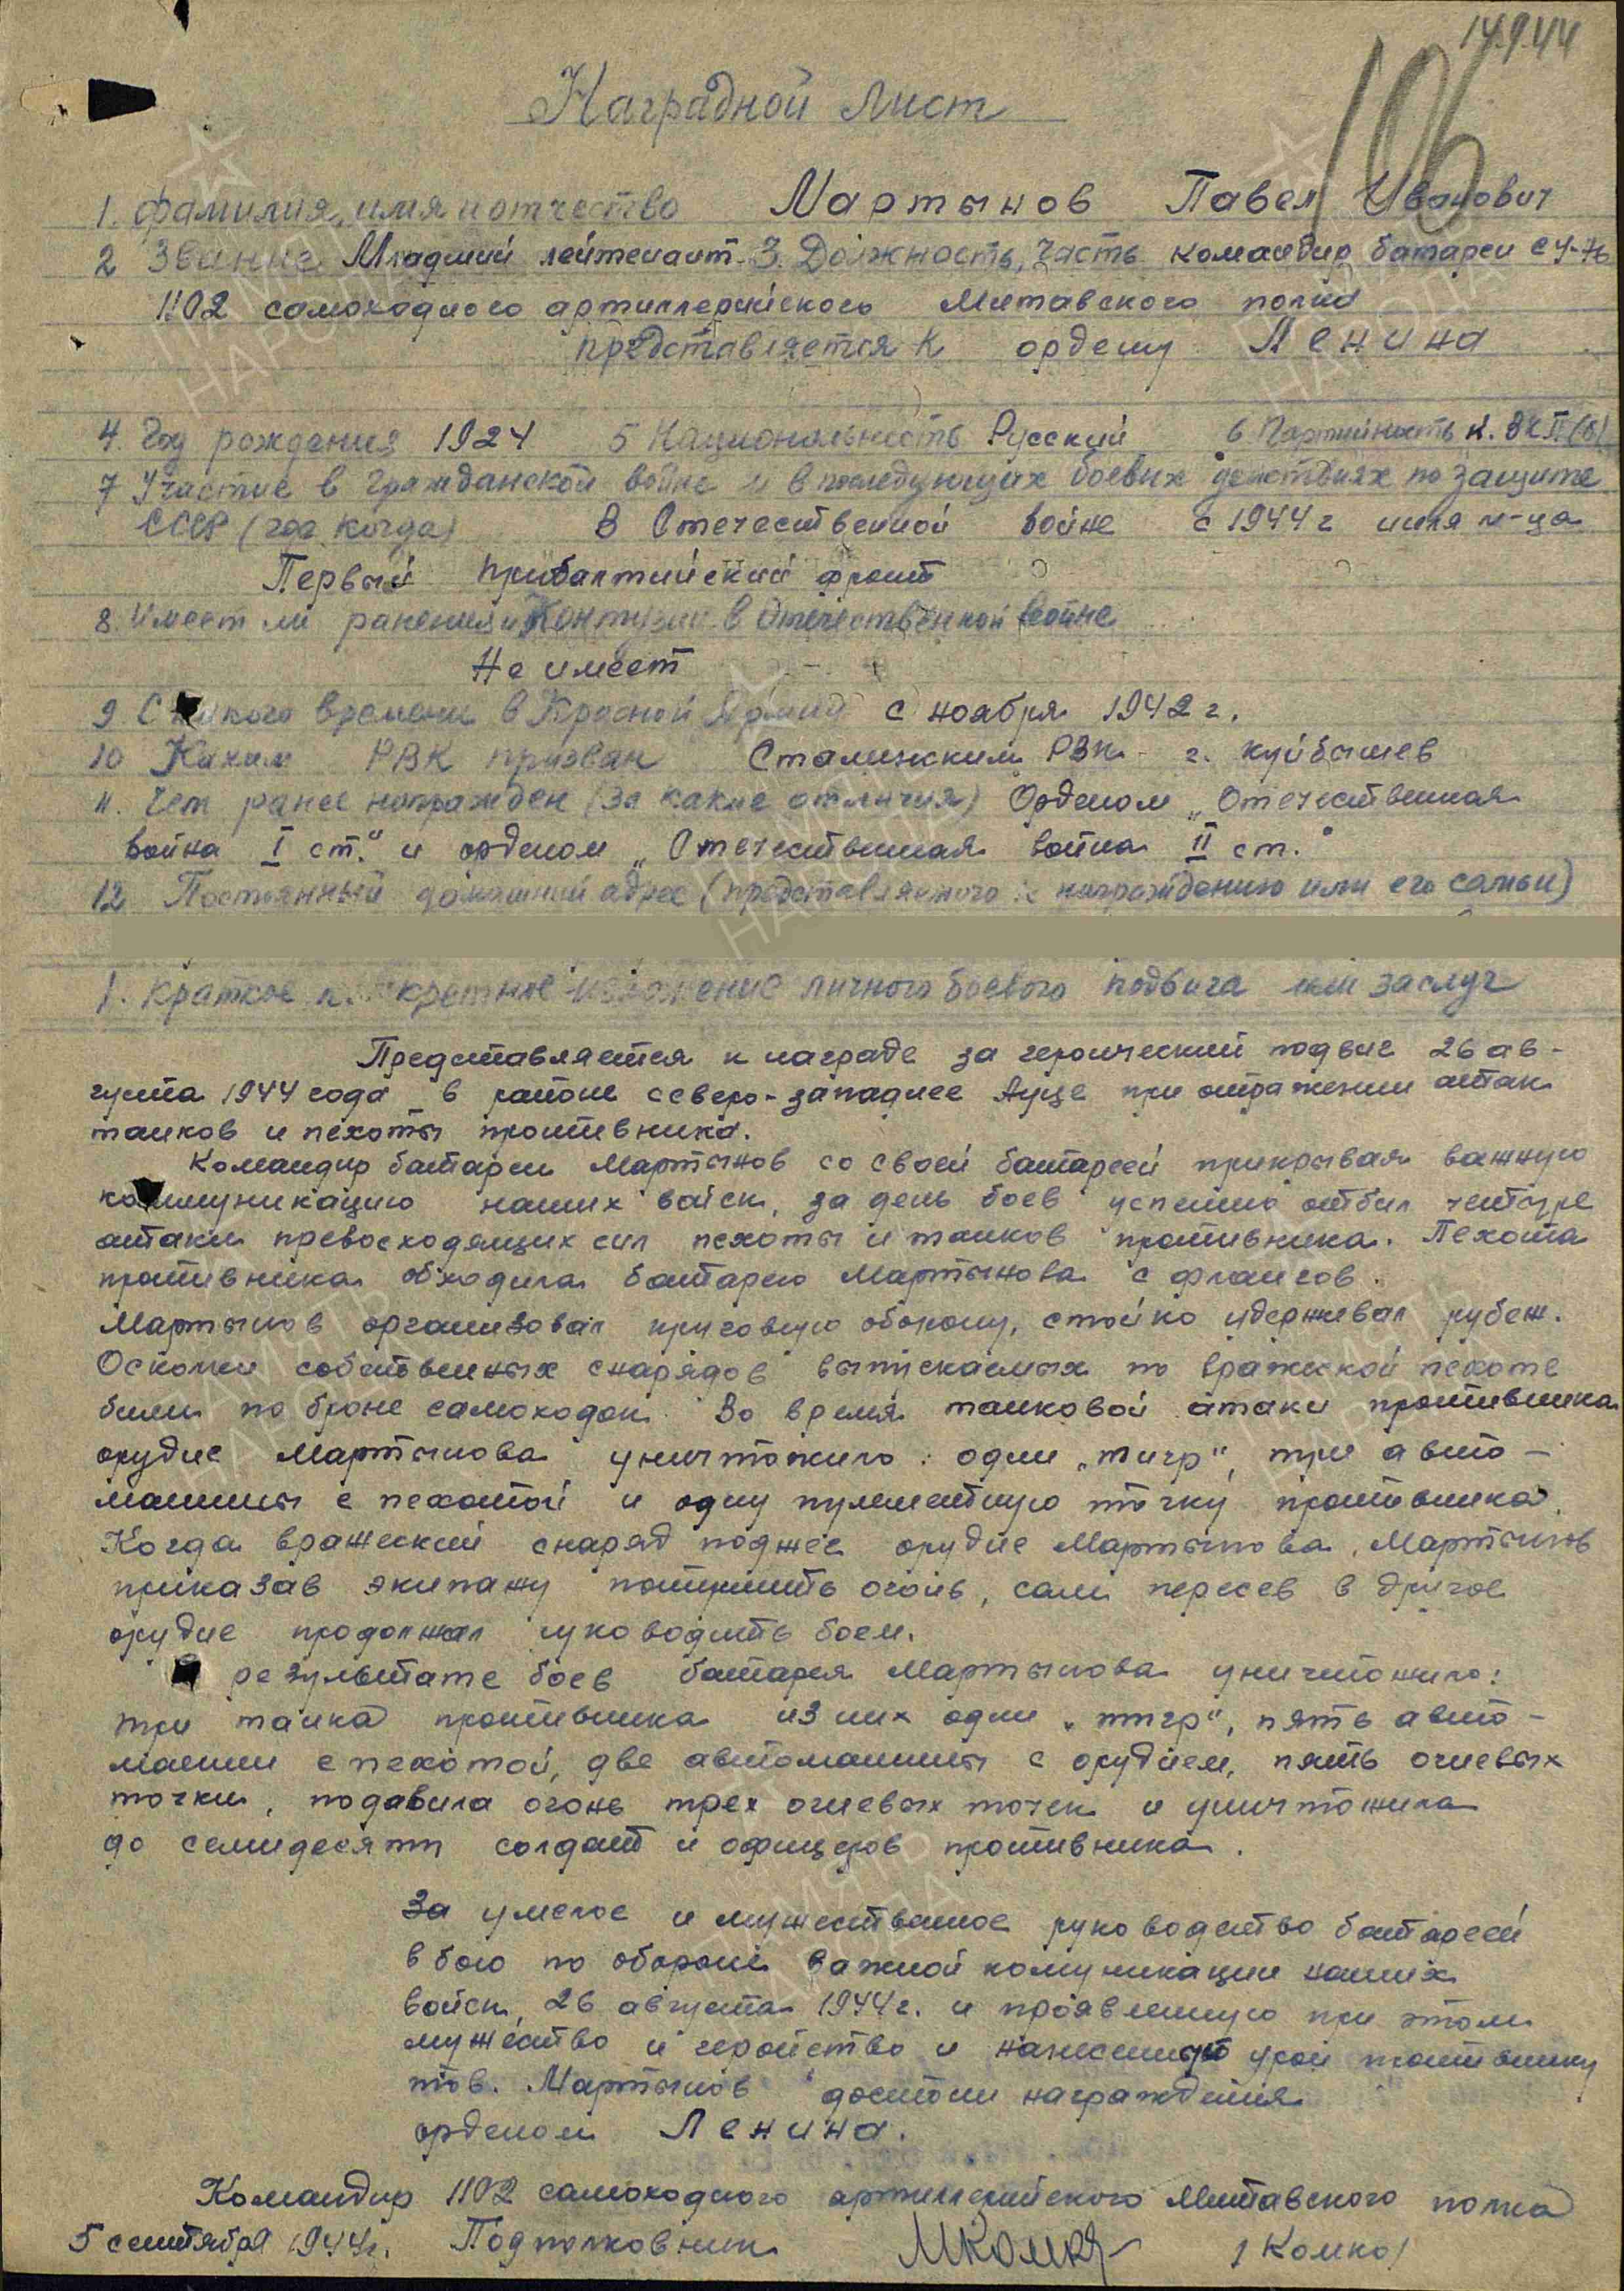 14.9.44
106
Наградной лист
1. Фамилия, имя и отчество Мартынов Павел Иванович
2 Звание Младший лейтенант 3. Должность, часть командир батареи СУ-76
1102 самоходного артиллерийского Митавского полка
представляется к ордену Ленина
4. Год рождения 1924 5 Национальность Русский 6 Партийность к. ВКП(б)
7 Участие в гражданской войне и в последующих боевых действиях по защите
СССР (где, когда) В Отечественной войне с 1944 г июля м-ца
Первый Прибалтийский фронт
8. Имеет ли ранения и контузии в отечественной войне
Не имеет
9 С какого времени в Красной Армии с ноября 1942 г.
10 Каким РВК призван Сталинским РВК г. Куйбышев
11. Чем ранее награжден (за какие отличия) Орденом „Отечественная
война I ст.“ и орденом „Отечественная война II ст."
12 Постоянный домашний адрес (представляемого к награждению или его семьи)
1. Краткое конкретное изложение личного боевого подвига или заслуг
Представляется к награде за героический подвиг 26 ав-
густа 1944 года в районе северо-западнее Ауце при отражении атак
танков и пехоты противника.
Командир батареи Мартынов со своей батареей прикрывая важную
коммуникацию наших войск, за день боев успешно отбил четыре
атаки превосходящих сил пехоты и танков противника. Пехота
противника обходила батарею Мартынова с флангов.
Мартынов организовал круговую оборону, стойко удерживал рубеж.
Осколки собственных снарядов выпускаемых по вражеской пехоте
били по броне самоходок. Во время танковой атаки противника
орудие Мартынова уничтожило: один „тигр“, три авто-
машины с пехотой и одну пулеметную точку противника.
Когда вражеский снаряд поджег орудие Мартынова, Мартынов
приказав экипажу потушить огонь, сам пересев в другое
орудие продолжал руководить боем.
В результате боев батарея Мартынова уничтожила:
три танка противника из них один „тигр“, пять авто-
машин с пехотой, две автомашины с орудием, пять огневых
точки, подавила огонь трех огневых точек и уничтожила
до семидесяти солдат и офицеров противника.
За умелое и мужественное руководство батареей
в бою по обороне важной комуникации наших
войск, 26 августа 1944 г. и проявленную при этом
мужество и геройство и нанесенный урон противнику
тов. Мартынов достоин награждения
орденом Ленина.
Командир 1102 самоходного артиллерийского Митавского полка
5 сентября 1944 г. Подполковник /Комко/